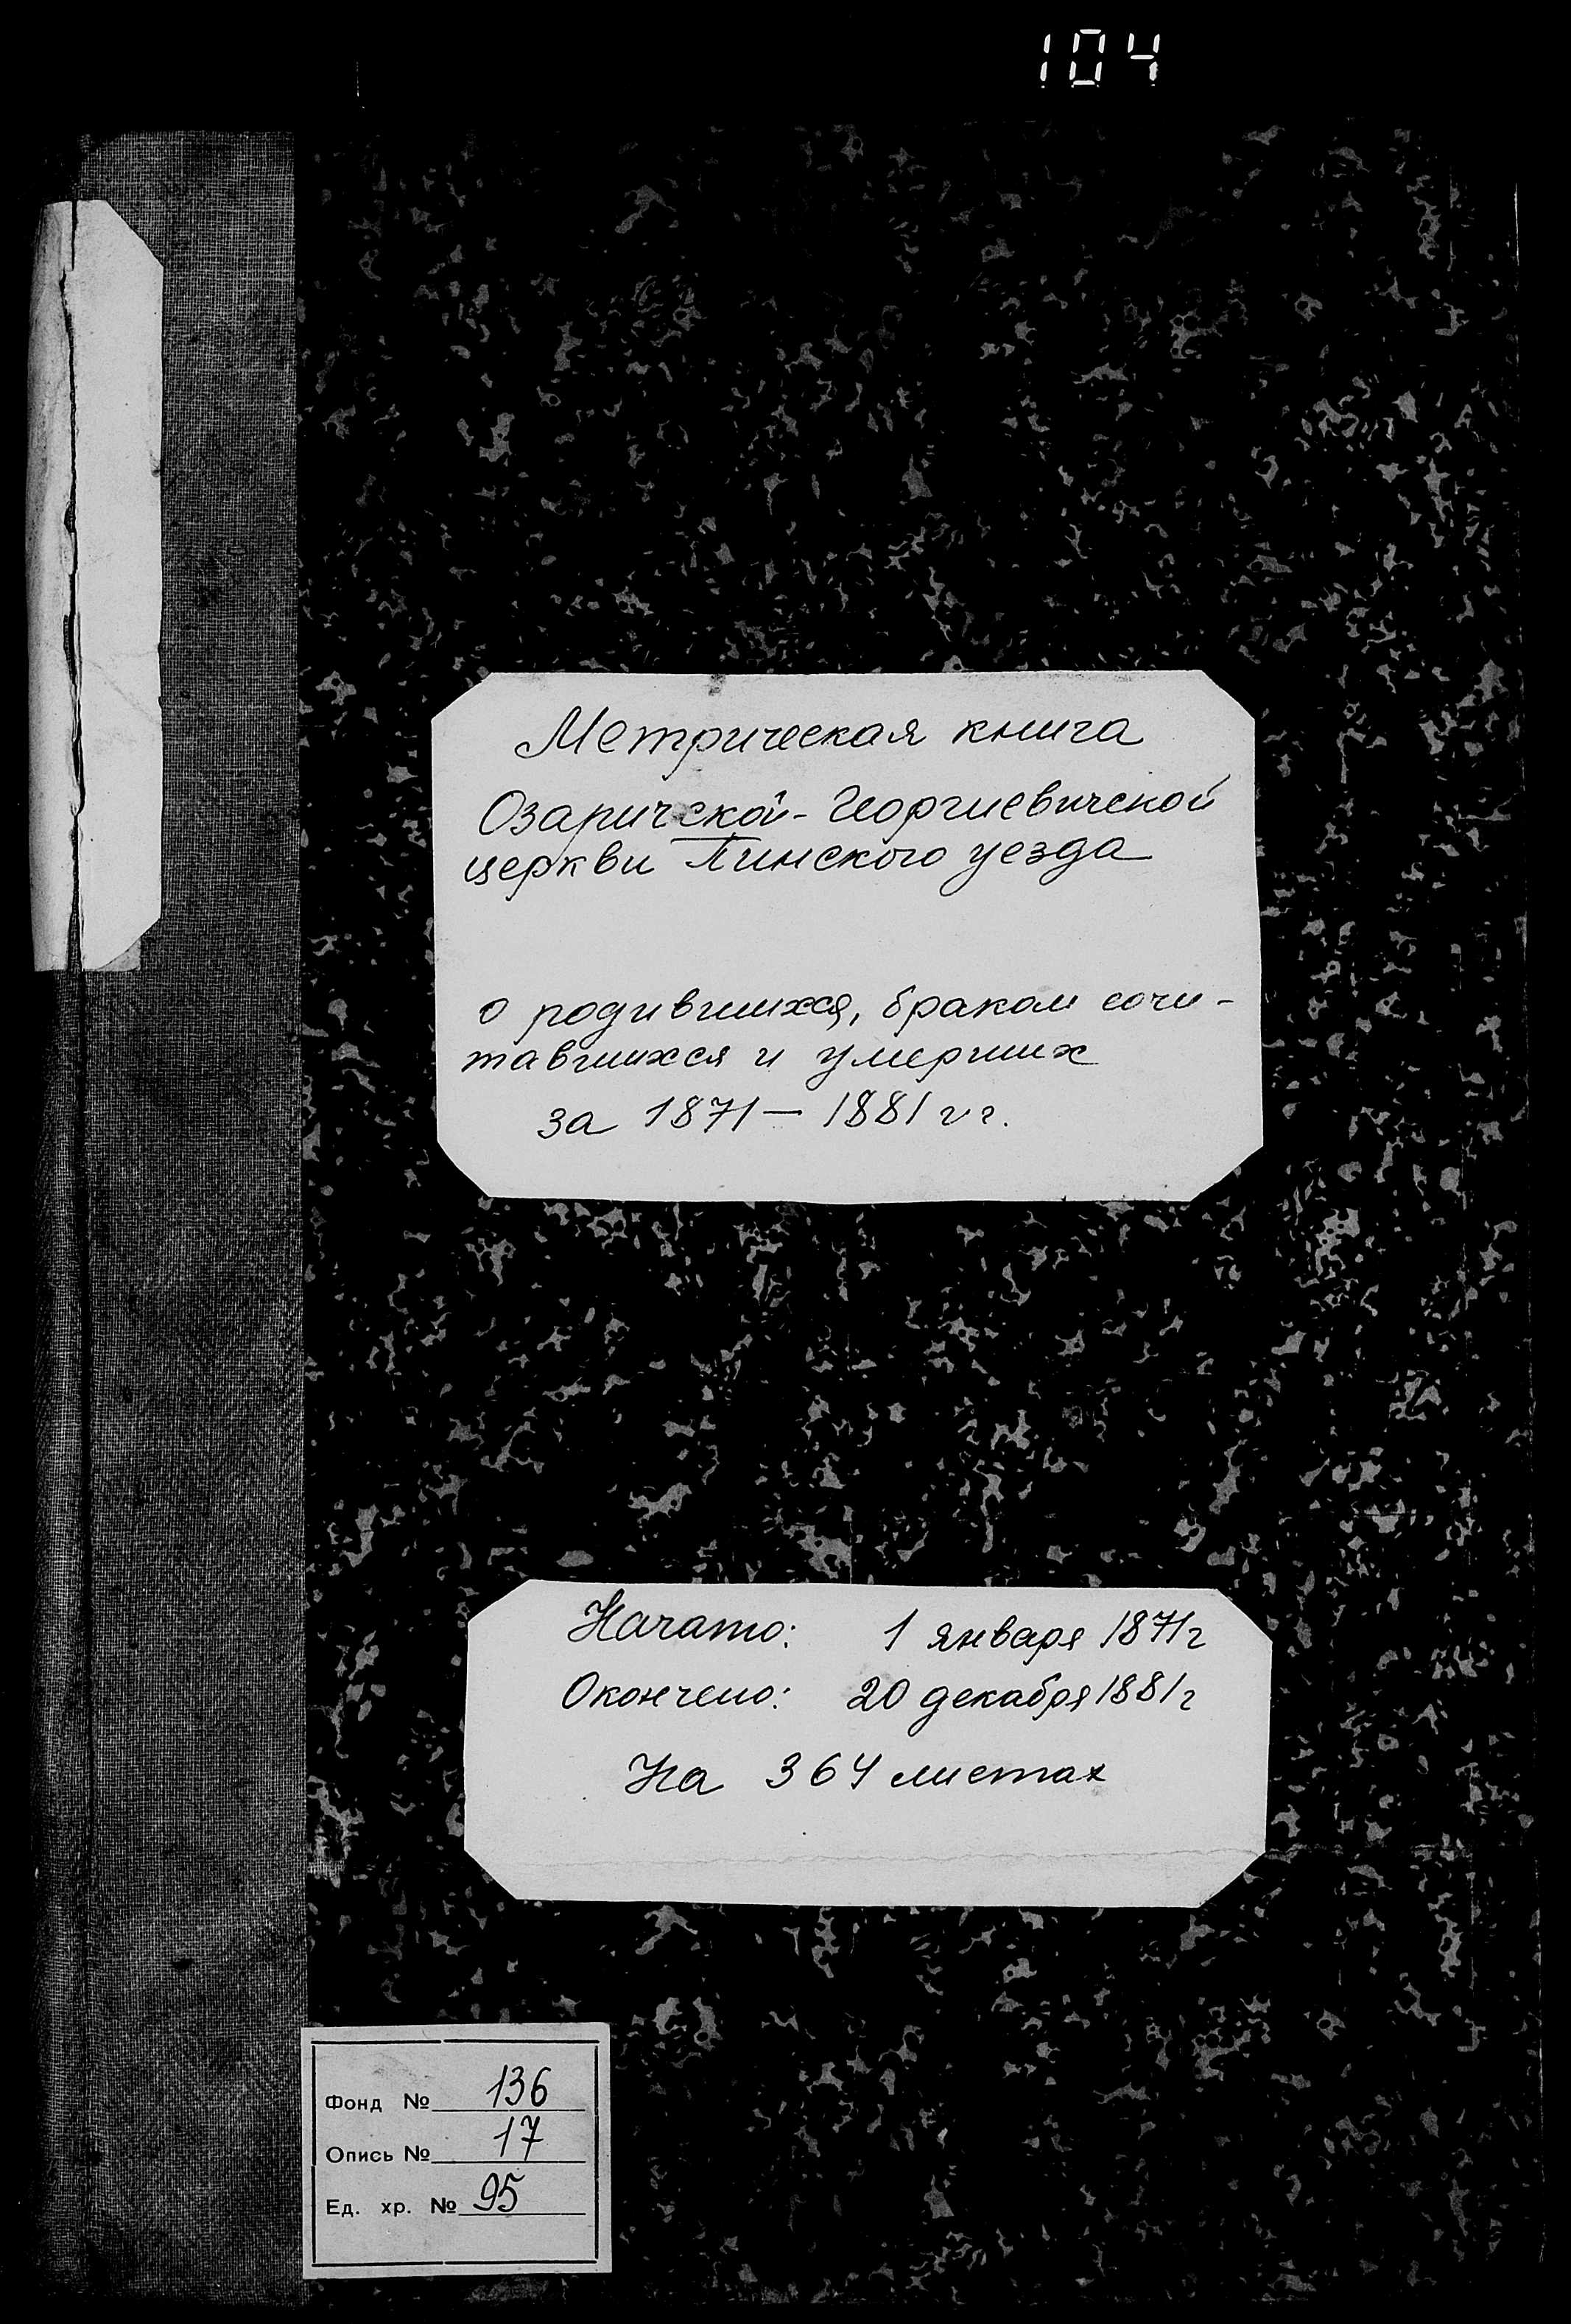 104
Метрическая книга
Озаричской-Георгиевичской
церкви Пинского уезда
о родившихся, браком сочи-
тавшихся и умерших
за 1871 — 1881 гг.
Начато: 1 января 1871г
Окончено: 20 декабря 1881г
На 364 листах
Фонд № 136
Опись № 17
Ед. хр. № 95